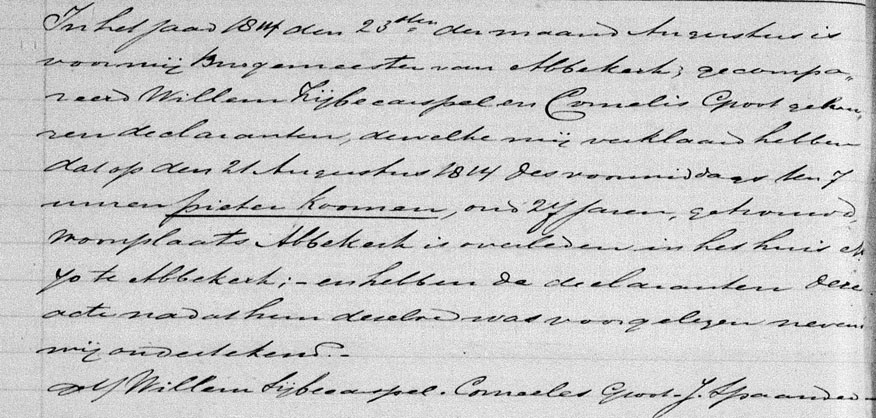 In het Jaar 1814 den 23sten der maand Augustus is
voor mij Burgemeester van Abbekerk; gecompa„
reerd Willem Zijbecarspel en Cornelis Groot gekou„
ren declaranten, dewelke mij verklaard hebben
dat op den 21 Augustus 1814 des voormiddags ten 7
uuren pieter Koomen, oud 27 Jaren, getrouwd,
woonplaats Abbekerk is overleden in het huis N
70 te Abbekerk; – en hebben de declaranten deze
acte nadat hem dezelve was voorgelezen nevens
mij ondertekend. –
Willem Sijbecarspel. Cornelis Groot. J. Spaander –